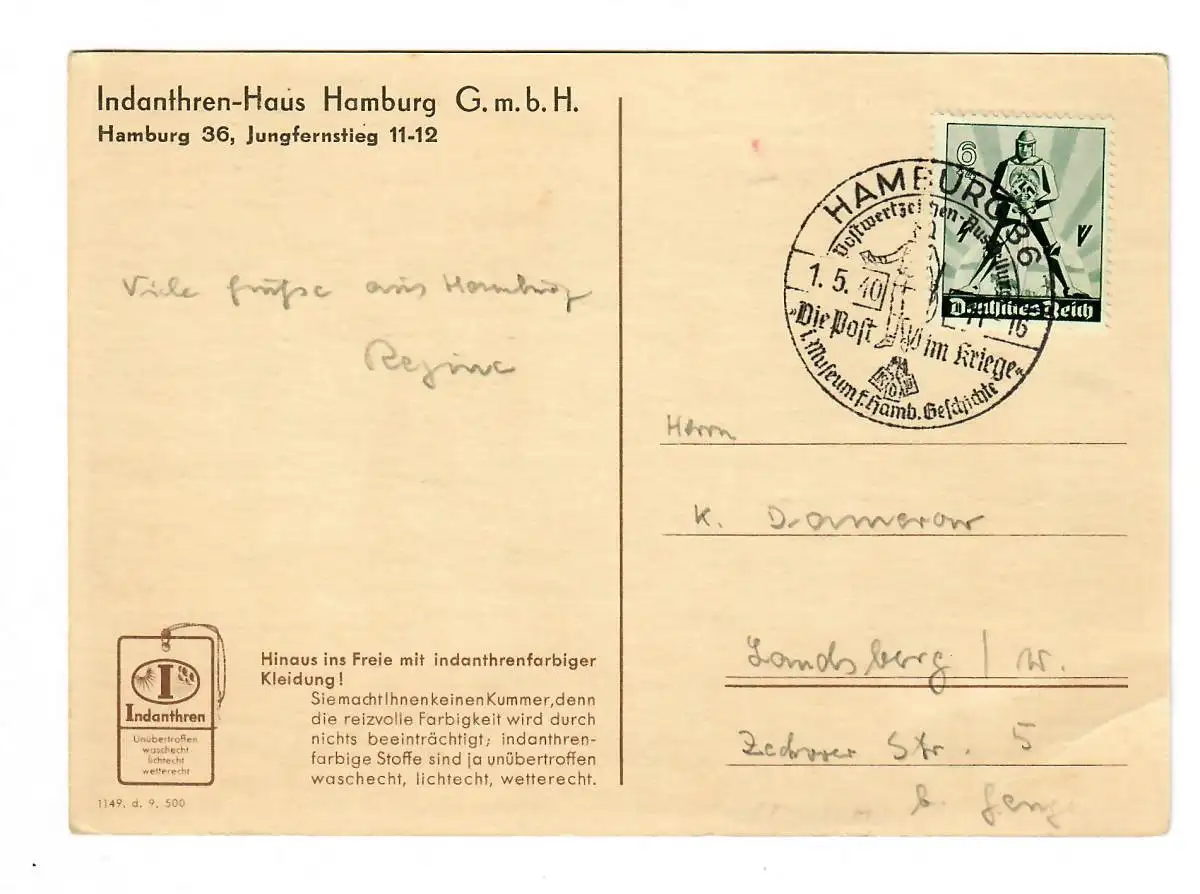 Indanthren-Haus Hamburg G.m.b.H.
Hamburg 36, Jungfernstieg 11-12
Viele Grüße aus Hamburg
6
Deutsches Reich
HAMBURG 36
Postwertzeichen-Ausstellung
1. 5. 40
11-16
"Die Post im Kriege"
i. Museum f. Hamb. Geschichte
Herrn
K. Damerow
Landsberg / W.
Str. 5
b.
I
Indanthren
Unübertroffen
waschecht
lichtecht
wetterecht
Hinaus ins Freie mit indanthrenfarbiger
Kleidung!
Sie macht Ihnen keinen Kummer, denn
die reizvolle Farbigkeit wird durch
nichts beeinträchtigt; indanthren-
farbige Stoffe sind ja unübertroffen
waschecht, lichtecht, wetterecht.
1149. d. 9. 500